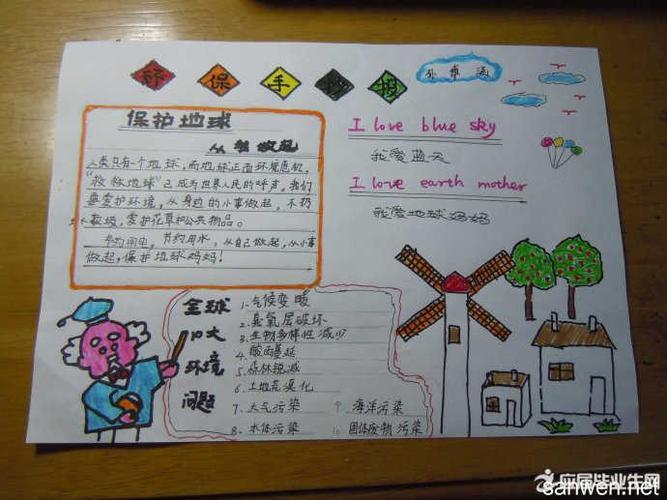 环保手抄报
保护地球
从我做起
人类只有一个地球,而地球正面环境危机,
“救救地球”已成为世界人民的呼声。我们
要爱护环境,从身边的小事做起,不扔
垃圾,爱护花草护公共物品。
节约用电,节约用水,从自己做起,从小事
做起,保护地球妈妈!
I love blue sky
我爱蓝天
I love earth mother
我爱地球妈妈
全球
10大
环境
问题
1.气候变暖
2.臭氧层破坏
3.生物多样性减少
4.酸雨蔓延
5.森林锐减
6.土地荒漠化
7.大气污染
8.水体污染
9.海洋污染
10.固体废物污染
应届毕业生网
sanwen.net